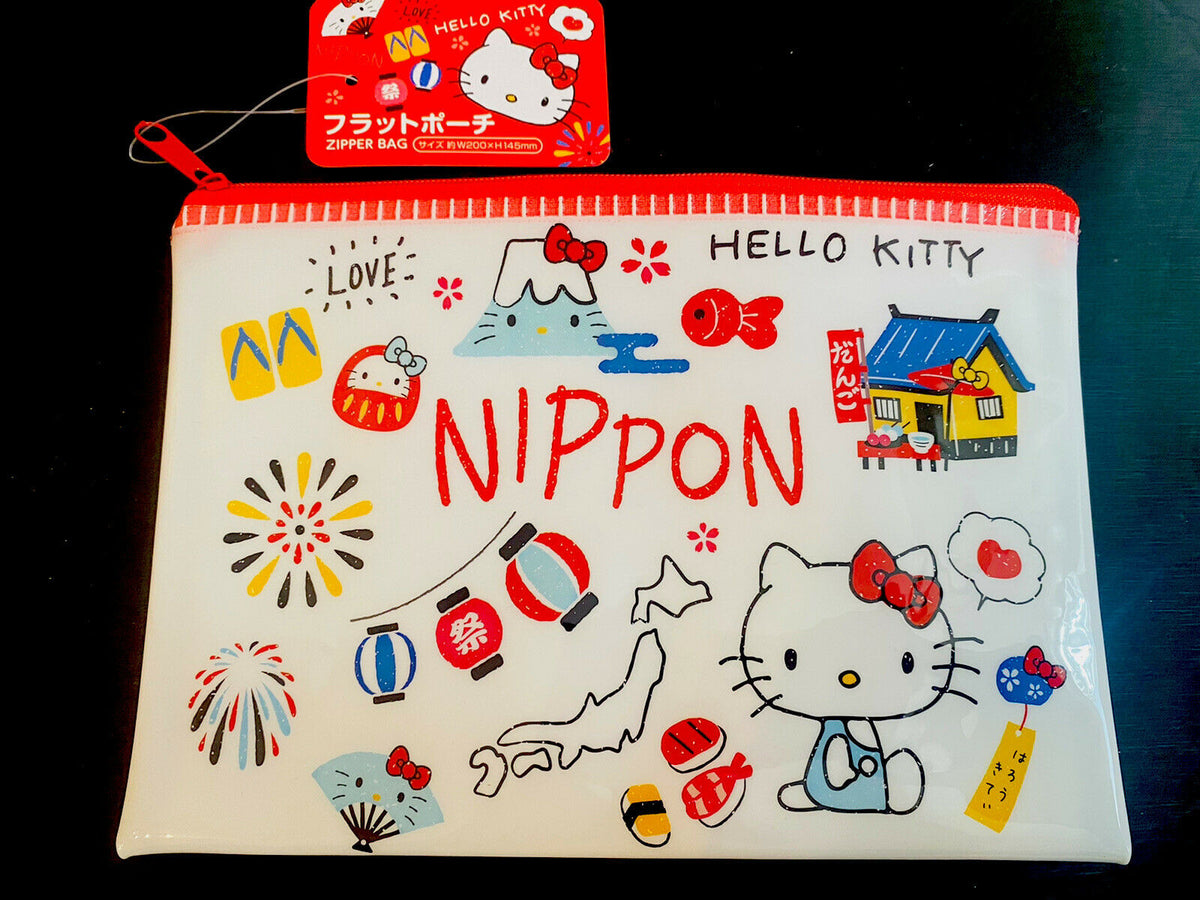 LOVE
HELLO KITTY
祭
フラットポーチ
ZIPPER BAG
サイズ 約W200×H145mm
LOVE
HELLO KITTY
だんご
NIPPON
祭
はろう
きてぃ